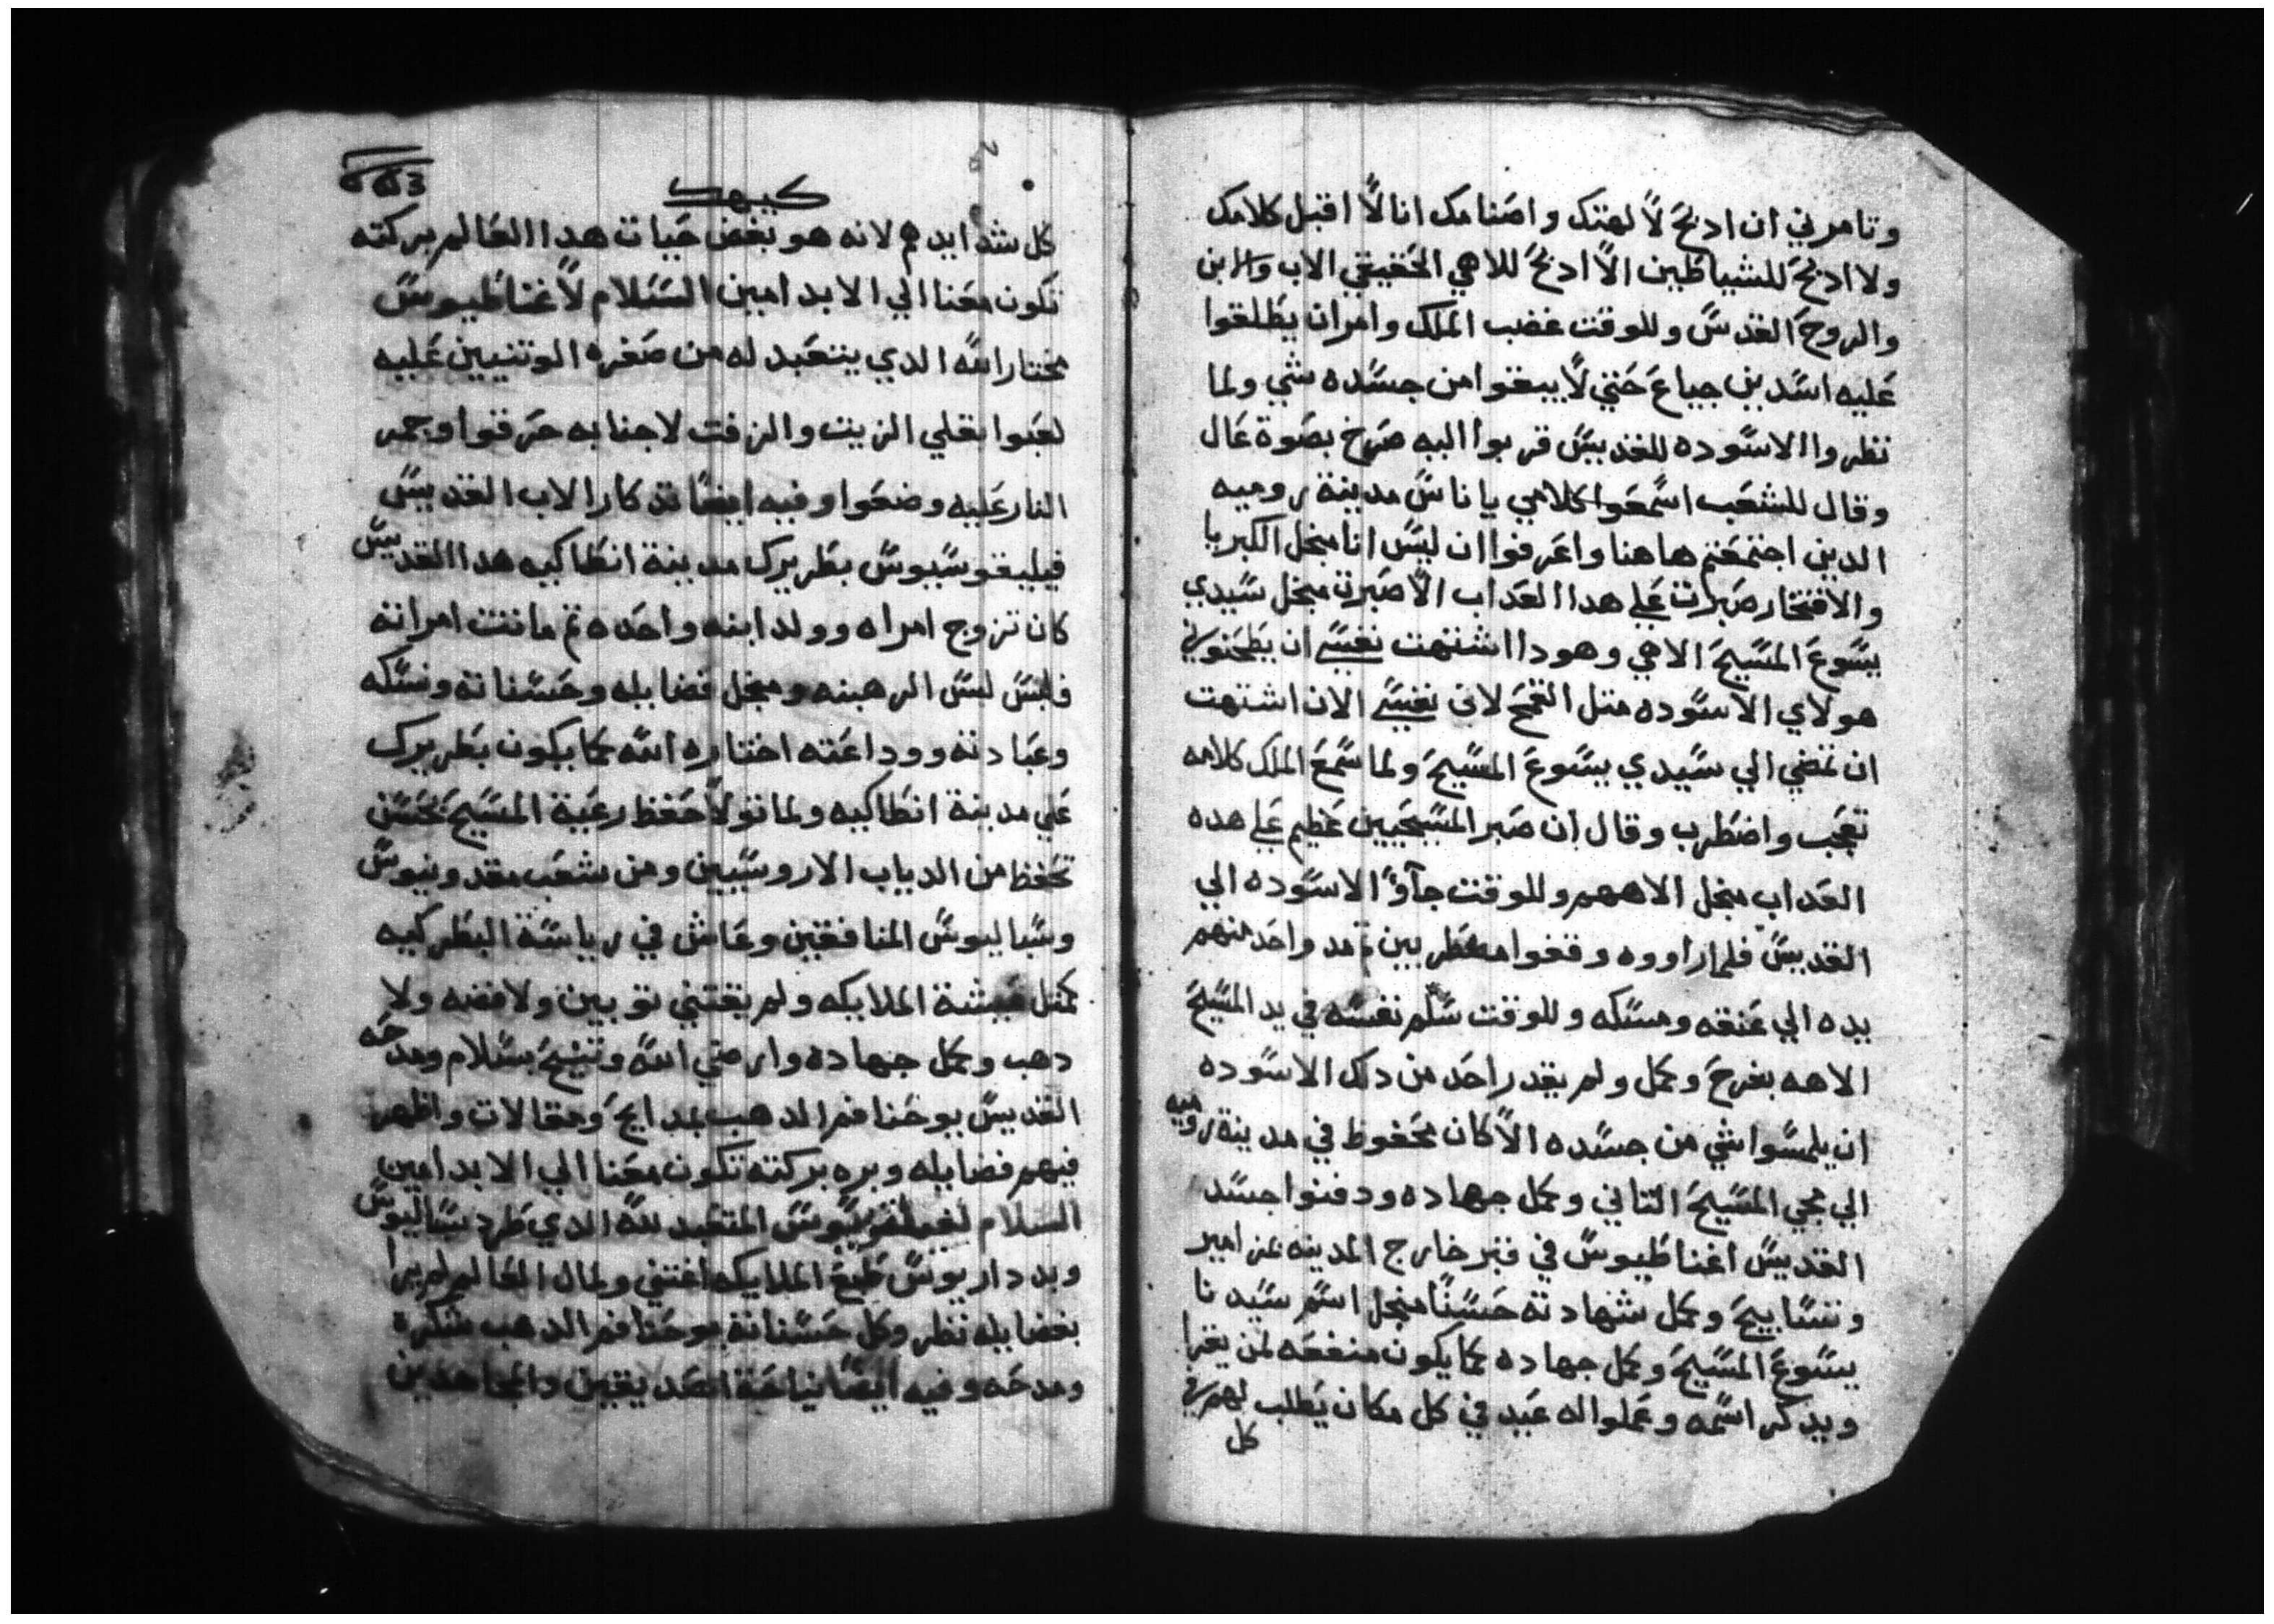 وتامرني ان ادبح لالهتك واصنامك انا لا اقبل كلامك
ولا ادبح للشياطين الا ادبح للاهي الحقيقي الاب والابن
والروح القدس وللوقت غضب الملك وامر ان يطلقوا
عليه اسدين جياع حتي لا يبقوا من جسده شي ولما
نظروا الاسوده للقديس قربوا اليه صرخ بصوة عال
وقال للشعب اسمعوا كلامي يا ناس مدينة روميه
الدين اجتمعتم هاهنا واعرفوا ان ليس انا منجل الكبريا
والافتخار صبرت علي هدا العداب الا صبرت منجل سيدي
يسوع المسيح الاهي وهودا اشتهت نفسي ان يطحنوني
هولاي الاسوده متل القمح لان نفسي الان اشتهت
ان تمضي الي سيدي يسوع المسيح ولما سمع الملك كلامه
تعجب واضطرب وقال ان صبر المسيحيين عظيم علي هده
العداب منجل الاههم وللوقت جآؤا الاسوده الي
القديس فلما راووه وقفوا مضطربين تم مد واحد منهم
يده الي عنقه ومسكه وللوقت سلم نفسه في يد المسيح
الاهه بفرح وكمل ولم يقدر احد من دلك الاسوده
ان يلمسوا شي من جسده الا كان محفوظ في مدينة روميه
الي مجي المسيح التاني وكمل جهاده ودفنوا جسد
القديس اغناطيوس في قبر خارج المدينه بمزامير
وتسابيح وكمل شهادته حسنا منجل اسم سيدنا
يسوع المسيح وكمل جهاده كما يكون منفعه لمن يقرا
ويدكر اسمه وعملوا له عيد في كل مكان يطلب لهم في
كل
كيهك
كل شدايدهم لانه هو بغض حيات هدا العالم بركته
تكون معنا الي الابد امين السلام لاغناطيوس
مختار الله الدي يتعبد له من صغره الوتنيين عليه
لعبوا بقلي الزيت والزفت لاجنابه حرقوا وجمر
النار عليه وضعوا وفيه ايضا تدكار الاب القديس
فيليغوسيوس بطريرك مدينة انطاكيه هدا القديس
كان تزوج امراه وولد ابنه واحده تم ماتت امراته
فلبس لبس الرهبنه ومنجل فضايله وحسناته ونسكه
وعبادته ووداعته اختاره الله كما يكون بطريرك
علي مدينة انطاكيه ولما تولا حفظ رعية المسيح بحسن
تحفظ من الدياب الاروسيين ومن شعب مقدونيوس
وساليوس المنافقين وعاش في رياسة البطركيه
كمتل عيشة الملايكه ولم يقتني توبين ولا فضه ولا
دهب وكمل جهاده وارضي الله وتنيح بسلام ومدحه
القديس يوحنا فم الدهب بمدايح ومقالات واظهر
فيهم فضايله وبره بركته تكون معنا الي الابد امين
السلام المتعبد لله الدي طرد ساليوس
طبع الملايكه اقتني ولمال العالم لم يرا
بفضايله نظر وكل حسناته يوحنا فم الدهب شكره
ومدحه وفيه ايضا نياحة الصديقين والمجاهدين